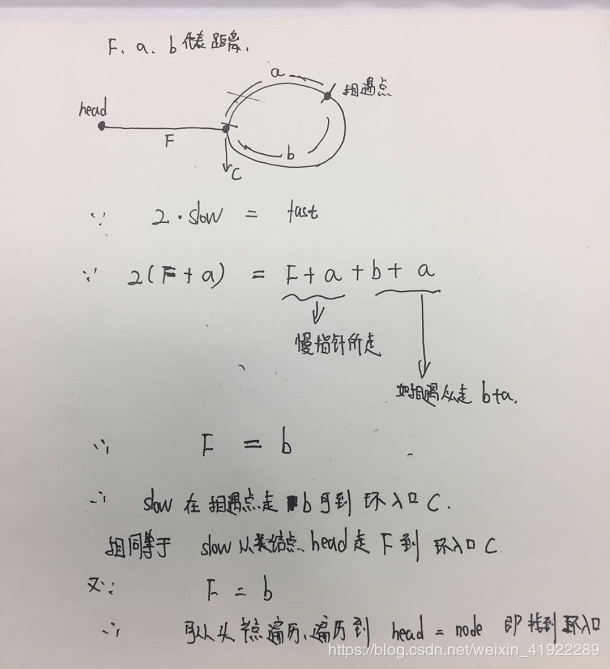 F、a、b代表距离,
a
相遇点
head
F
b
C
∵ 2·slow = fast
∵ 2(F+a) = F+a+b+a
慢指针所走
相遇从走 b+a.
∴ F = b
∴ slow 在相遇点走 b 可到 环入口 C.
相同等于 slow 从 head 走 F 到 环入口 C
又∵ F = b
∴ 可从头节点遍历,遍历到 head = node 即找到环入口
https://blog.csdn.net/weixin_41922289